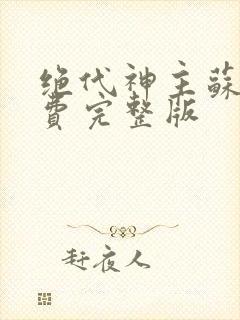 绝代神主蘇
費完整版
赶夜人